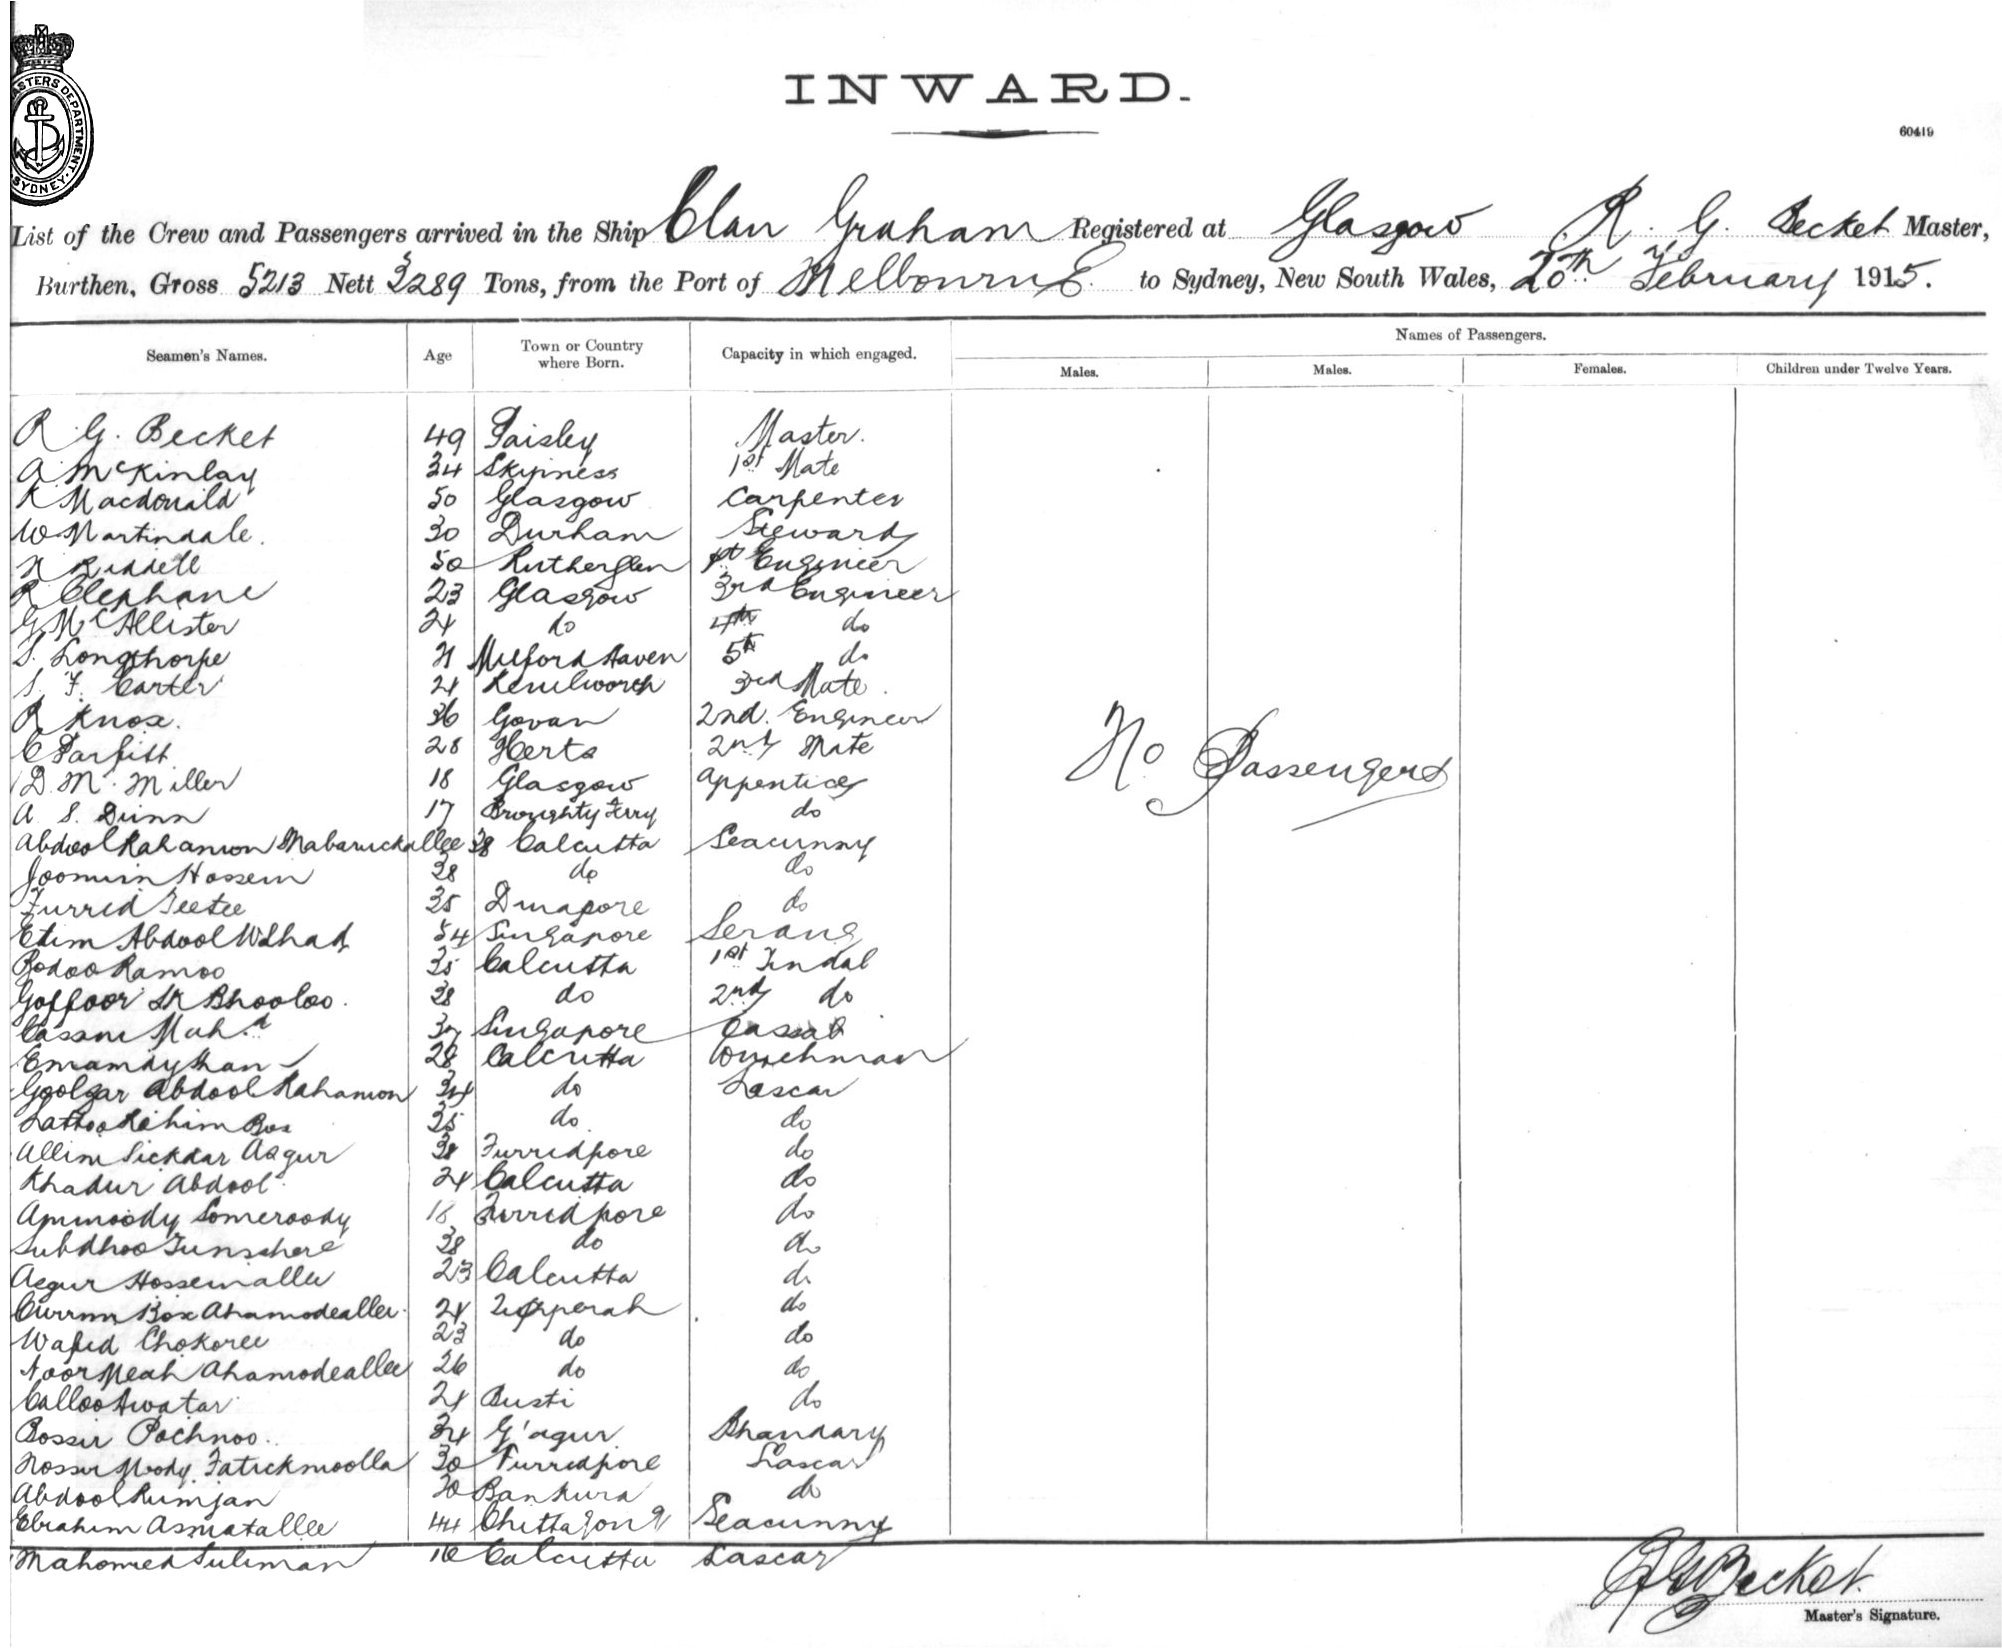 MASTERS DEPARTMENT. SYDNEY.
INWARD.
60419
List of the Crew and Passengers arrived in the Ship Clan Graham Registered at Glasgow R. G. Becket Master,
Burthen, Gross 5213 Nett 3289 Tons, from the Port of Melbourne to Sydney, New South Wales, 20th February 1915.
Seamen's Names. Age Town or Country where Born. Capacity in which engaged. Names of Passengers.
Males. Males. Females. Children under Twelve Years.
R. G. Becket 49 Paisley Master.
A. McKinlay 34 Skipness 1st Mate
K Macdonald 50 Glasgow Carpenter
W Martindale. 30 Durham Steward
Riddell 50 Rutherglen 1st Engineer
R Clephane 23 Glasgow 3rd Engineer
G. McAllister 24 do 4th do
S. Longthorpe 21 Milford Haven 5th do
S. F. Carter 21 Kenilworth 3rd Mate.
R Knox. 36 Govan 2nd. Engineer
C Parfitt 28 Herts 2nd Mate
D. M. Miller 18 Glasgow Apprentice
A. S. Dunn 17 Broughty Ferry do
Abdool Rahamon Mabaruckallee 38 Calcutta Seacunny
Joomun Hossein 38 do do
Furrid Teetee 35 Dinapore do
Etim Abdool 54 Singapore Serang
Bodoo Ramoo 35 Calcutta 1st Tindal
Goffoor Sk Bhooloo. 38 do 2nd do
Cassim Mahd Singapore Cassab
28 Calcutta Winchman
Goolzar Abdool Rahamon 34 do Lascar
Lattoo Rahim Box 35 do do
Allim Sickdar Asgur 38 Furridpore do
Khadur Abdool 24 Calcutta do
Someroody 18 Furridpore do
38 do do
Asgur Hosseinallee 23 Calcutta do
Currim Box Ahamodeallee 24 Tipperah do
Wafid Chokoree 23 do do
Noor Meah Ahamodeallee 26 do do
Calloo Awatar 24 Busti do
Bossir Pochnoo. 34 G'agur Bhandary
Fatickmoolla 30 Furridpore Lascar
Abdool Rumjan 30 Bankura do
Ebrahim Asmatallee 44 Chittagong Seacunny
Mahomed Suliman Calcutta Lascar
No Passengers
R G Becket.
Master's Signature.